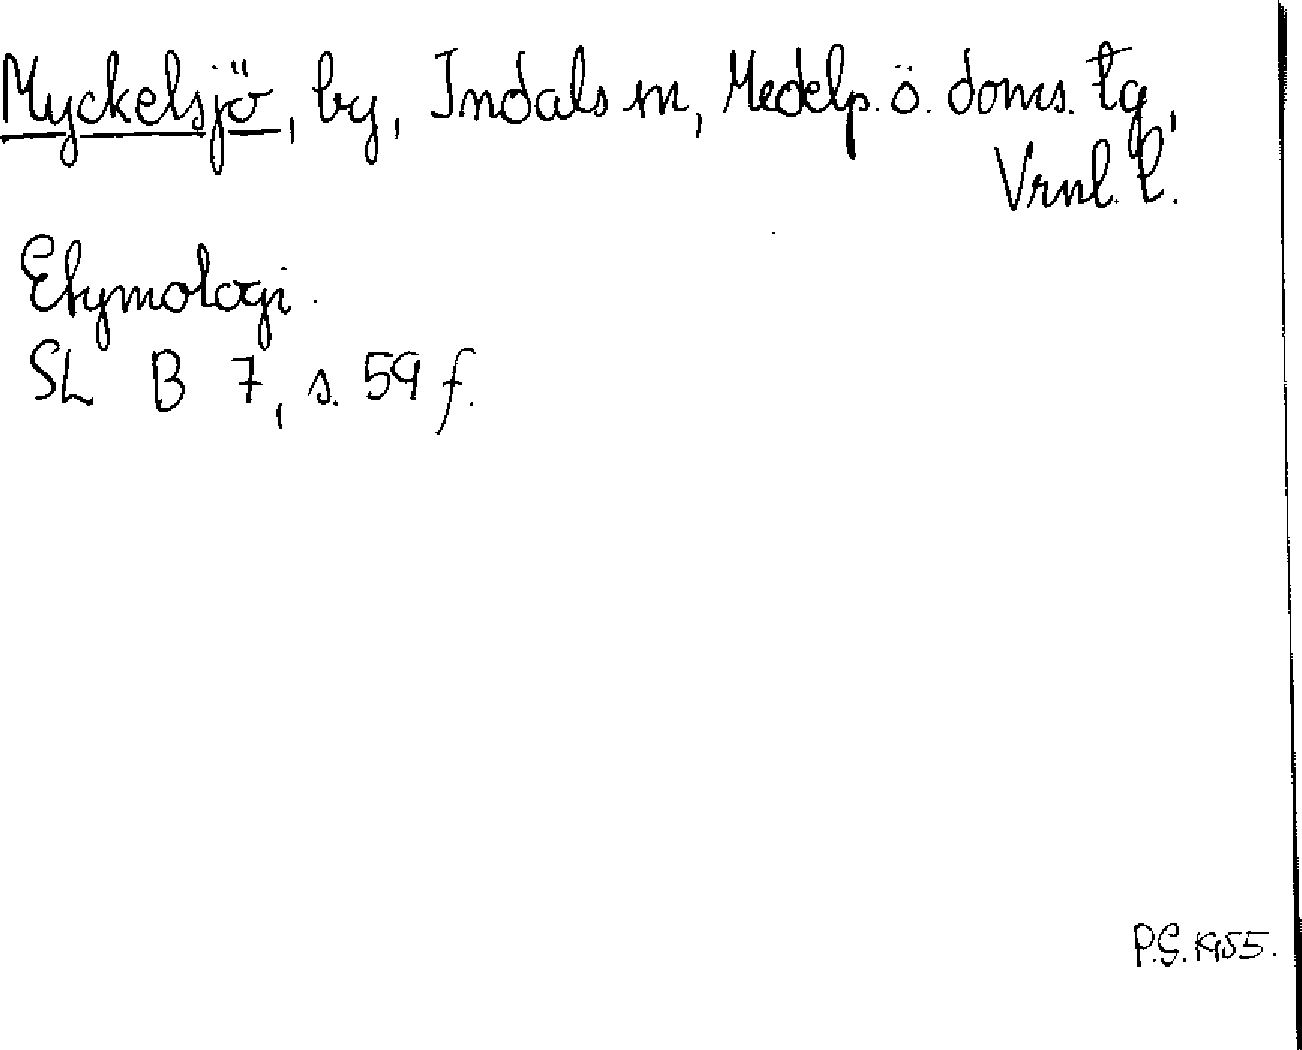 Myckelsjö, by, Indals sn, Medelp. ö. doms. tg,
Vrnl. l.
Etymologi.
SL B 7, s. 59 f.
P.G. 1955.